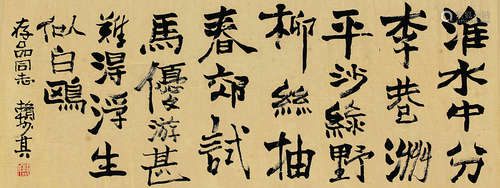 淮水中分
李巷洲
平沙綠野
柳絲抽
春郊試
馬優游甚
難得浮生
似白鷗
存品同志 賴少其